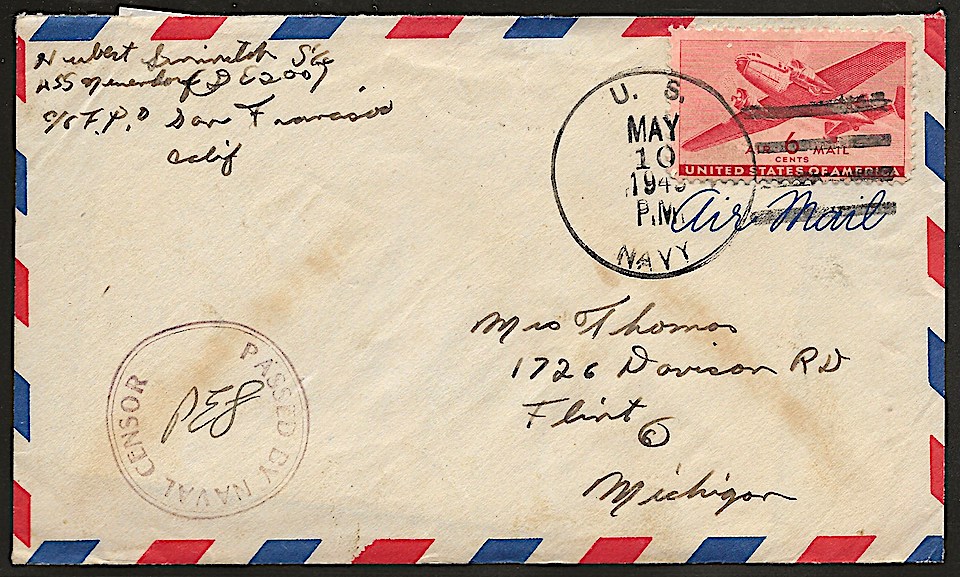 Hubert S2/c
USS DE 2007
c/o F.P.O San Francisco
Calif
U. S.
MAY
10
1945
P.M.
NAVY
AIR 6 MAIL
CENTS
UNITED STATES OF AMERICA
Air Mail
Mrs Thomas
1726 Davison RD
Flint 6
Michigan
PASSED BY NAVAL CENSOR
PES